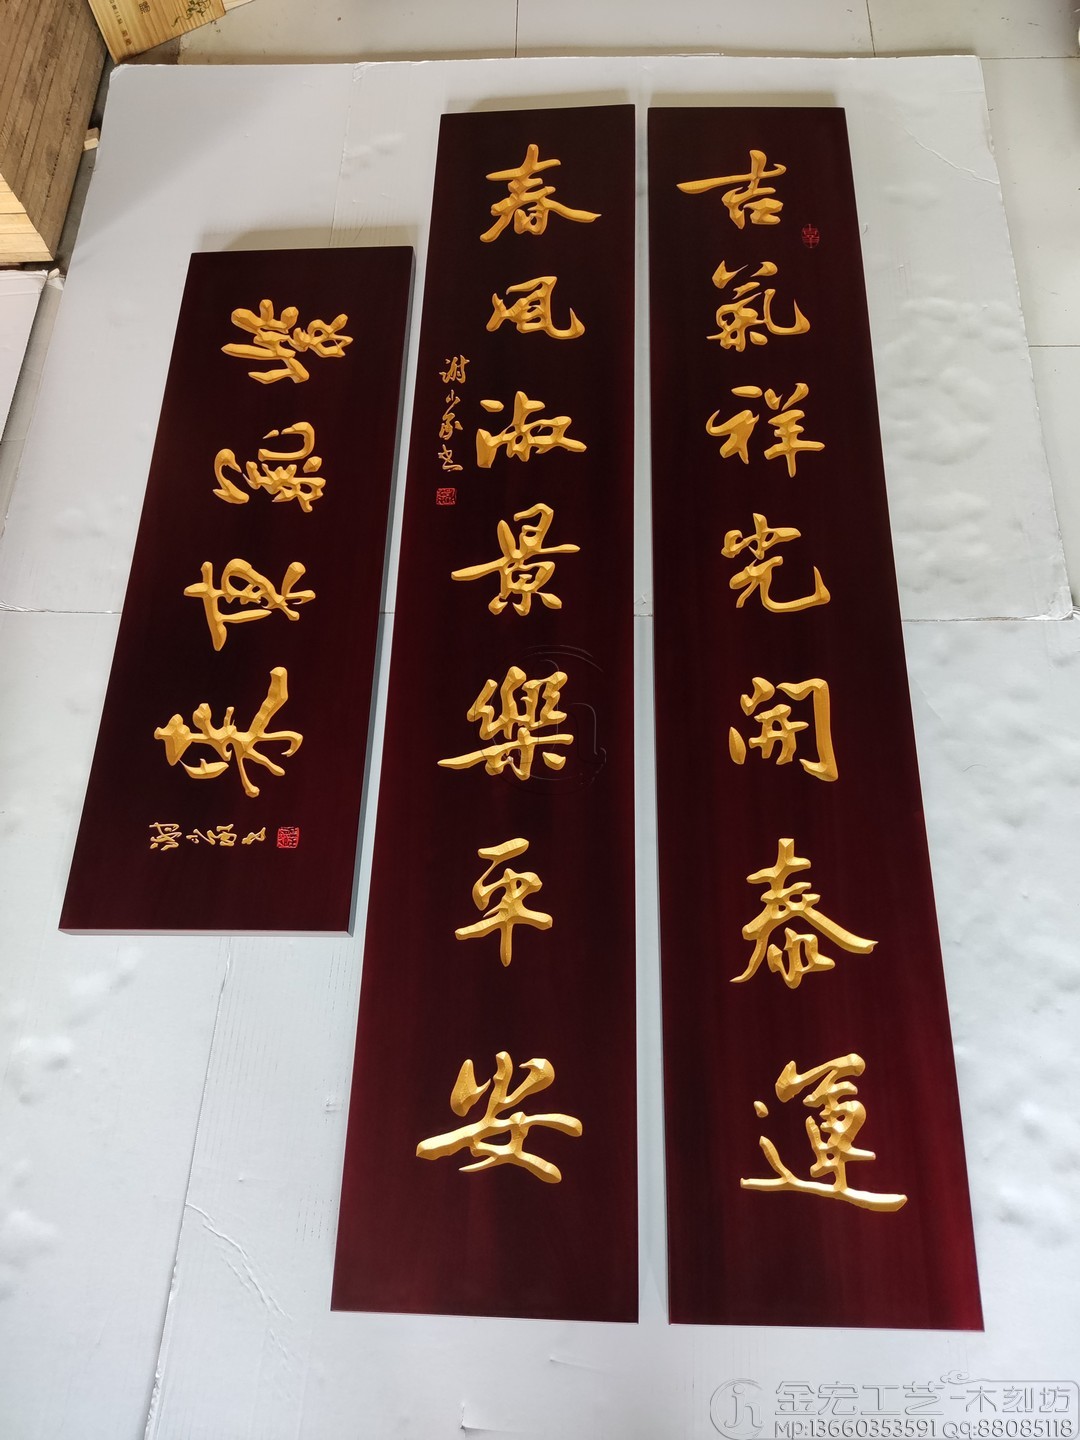 吉氣祥光開泰運
春風淑景樂平安
紫氣東來
金宏工艺-木刻坊
MP:13660353591 QQ:88085118